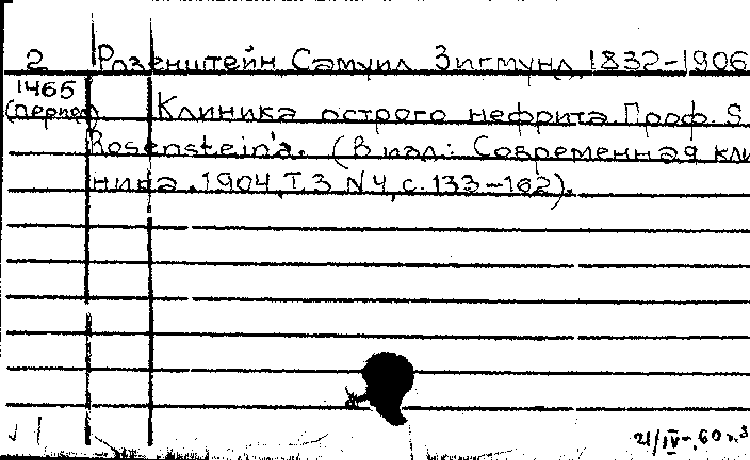 2 Розенштейн Самуил Зигмунд, 1832-1906
1465
(период) Клиника острого нефрита. Проф. S.
Rosenstein'a. (В изд.: Современная кли
ника. 1904, Т. 3 N 4, с. 133-162).
21/IV-60 г.